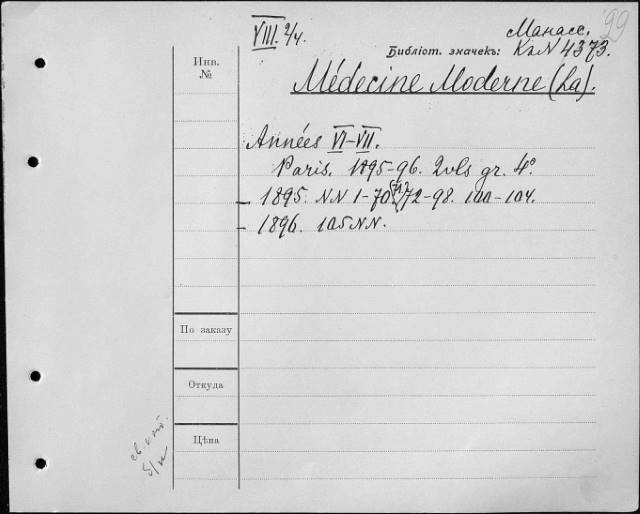 VIII. 2/4.
Манасс.
99
Библіот. значекъ: К2N 4373.
Инв.
№
Médecine Moderne (La).
Années VI-VII.
Paris. 1895-96. 2 vls gr. 4°
- 1895. NN 1-70. (71.) 72-98. 100-104.
- 1896. 105 NN.
По заказу
Откуда
Цѣна
б/н